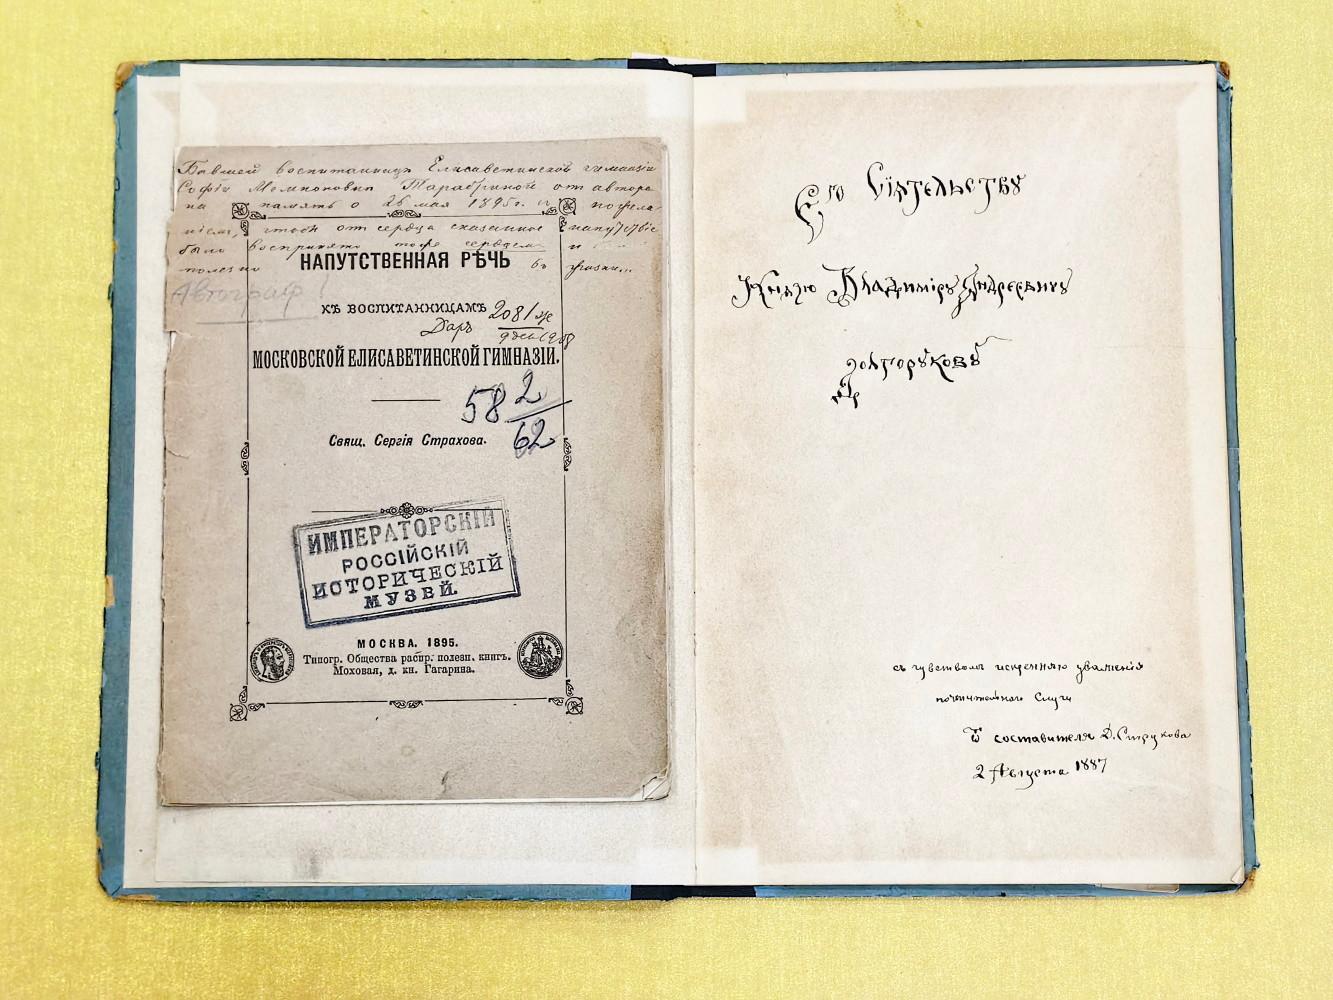 Бывшей воспитанницѣ Елисаветинской гимназіи
Софіи Тарабриной от автора
на память о 26 мая 1895 г. и пожела
ніем, чтоб от сердца сказанное напутствіе
было воспринято тоже сердцем и
полезно въ жизни...
НАПУТСТВЕННАЯ РѢЧЬ
Автограф!
КЪ ВОСПИТАННИЦАМЪ
Даръ 2081
МОСКОВСКОЙ ЕЛИСАВЕТИНСКОЙ ГИМНАЗІИ.
58 2/62
Свящ. Сергія Страхова.
ИМПЕРАТОРСКІЙ
РОССІЙСКІЙ
ИСТОРИЧЕСКІЙ
МУЗЕЙ.
МОСКВА. 1895.
Типогр. Общества распр. полезн. книг.
Моховая, д. кн. Гагарина.
Его Сіятельству
Князю Владиміру Андреевичу
Долгорукову
съ чувствомъ искренняго уваженія
почтительнаго слуги
Ѿ составителя Д. Струкова
2 Августа 1887